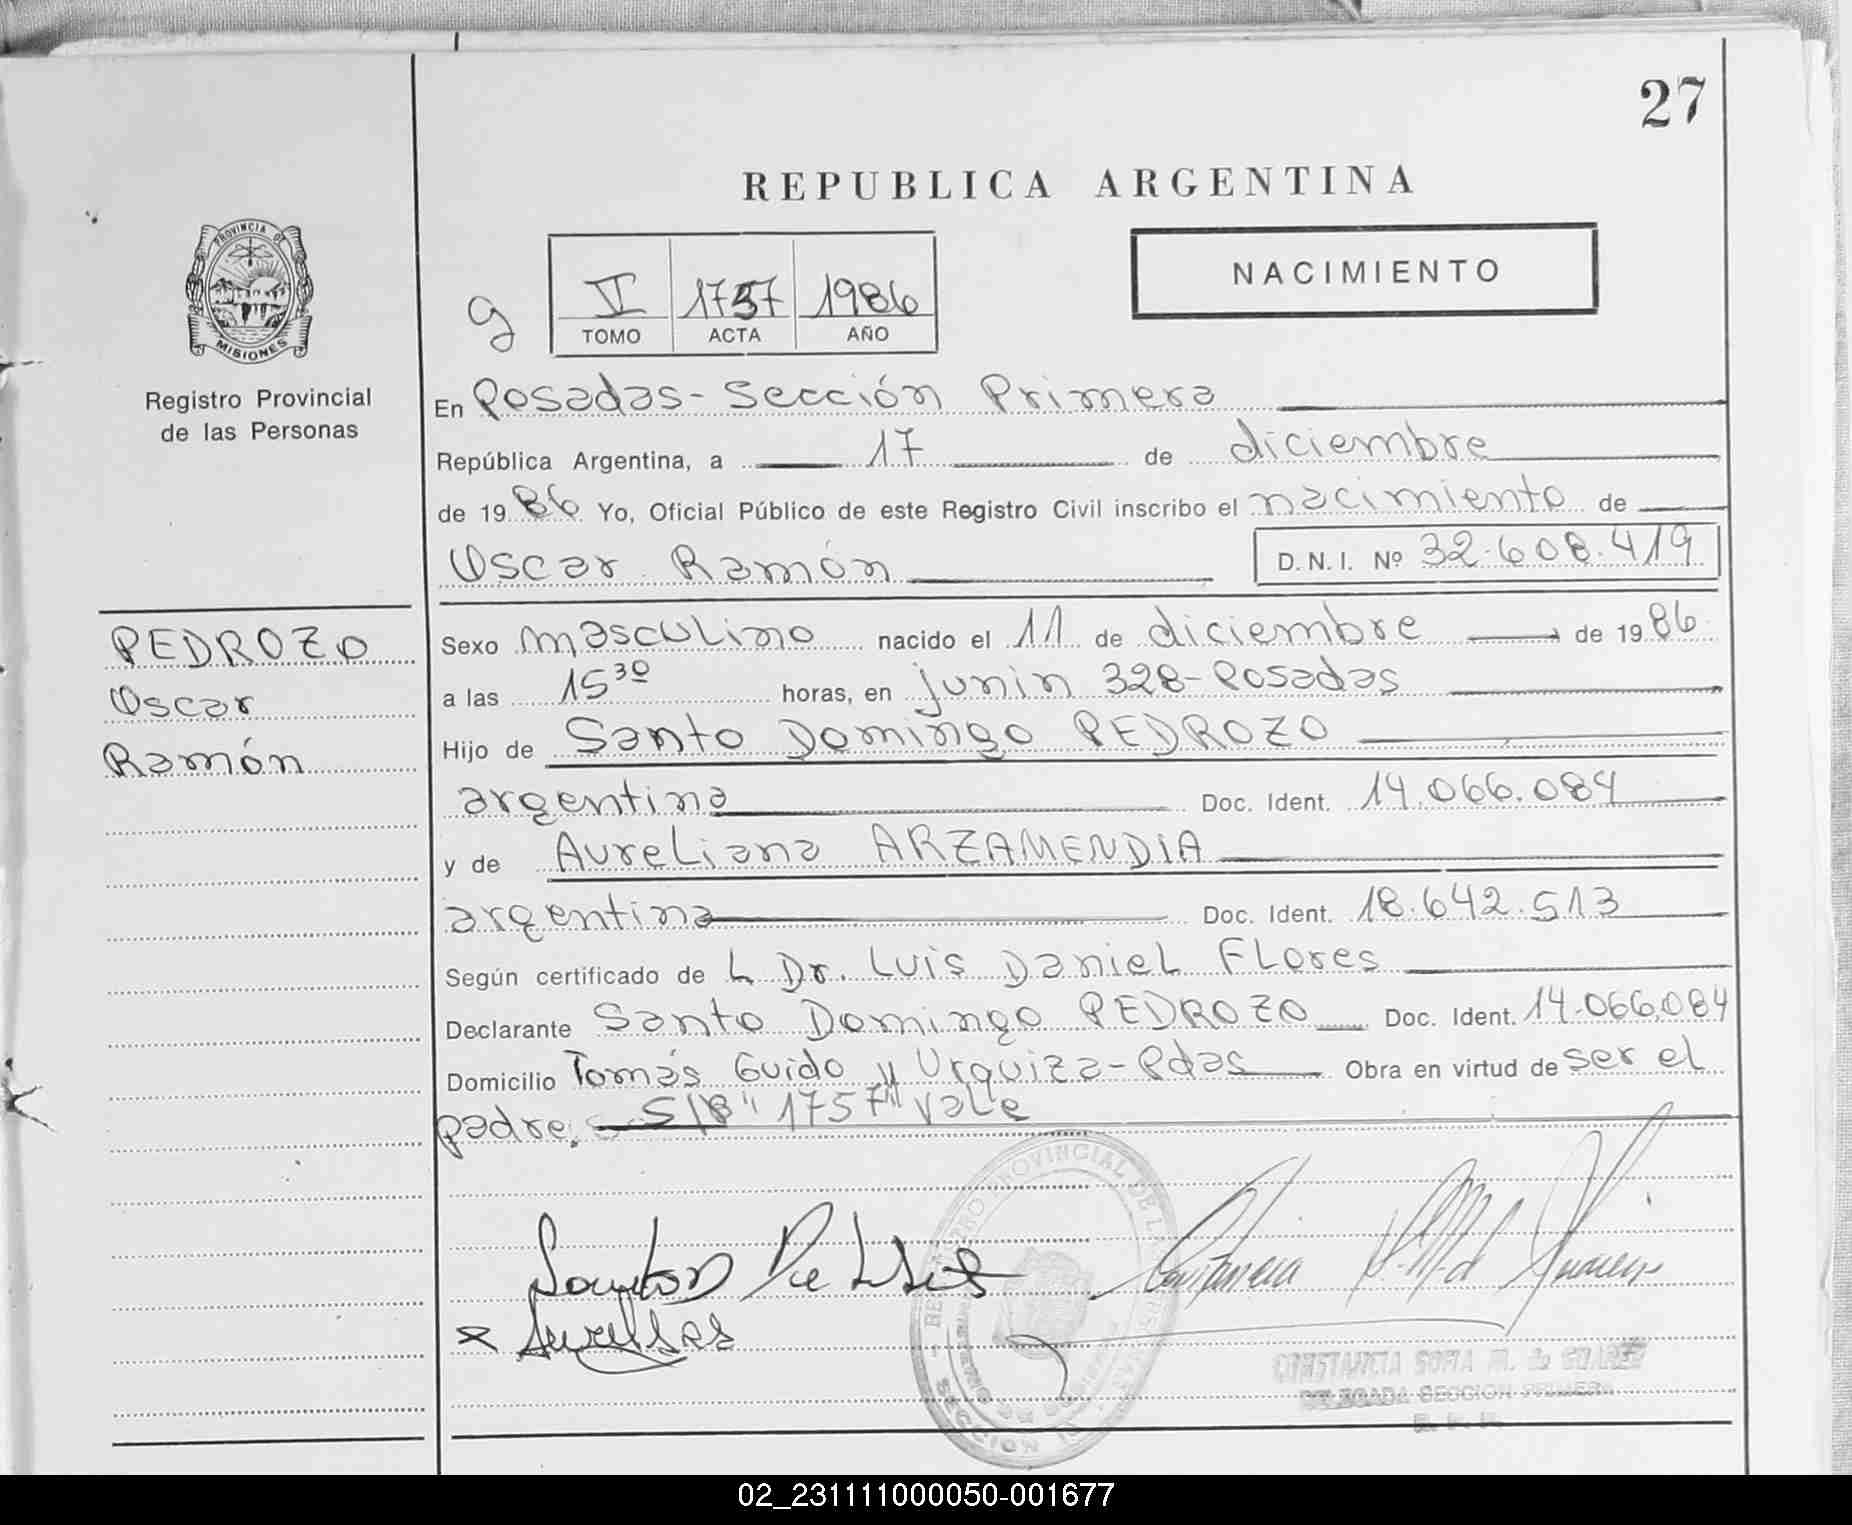 27
REPUBLICA ARGENTINA
PROVINCIA DE
MISIONES
Registro Provincial
de las Personas
g
VI 1757 1986
TOMO ACTA AÑO
NACIMIENTO
En Posadas-Sección Primera
República Argentina, a 17 de diciembre
de 1986 Yo, Oficial Público de este Registro Civil inscribo el nacimiento de
Oscar Ramón D.N.I. Nº 32.608.419
PEDROZO
Oscar
Ramón
Sexo masculino nacido el 11 de diciembre de 1986
a las 15³⁰ horas, en junin 328-Posadas
Hijo de Santo Domingo PEDROZO
argentina Doc. Ident. 14.066.084
y de Aureliana ARZAMENDIA
argentina Doc. Ident. 18.642.513
Según certificado de L Dr. Luis Daniel Flores
Declarante Santo Domingo PEDROZO Doc. Ident. 14.066.084
Domicilio Tomás Guido y Urquiza-Pdas Obra en virtud de ser el
padre. S/B "1757" vale
CONSTANCIA SOFIA M. de SUAREZ
DELEGADA SECCION PRIMERA
02_231111000050-001677